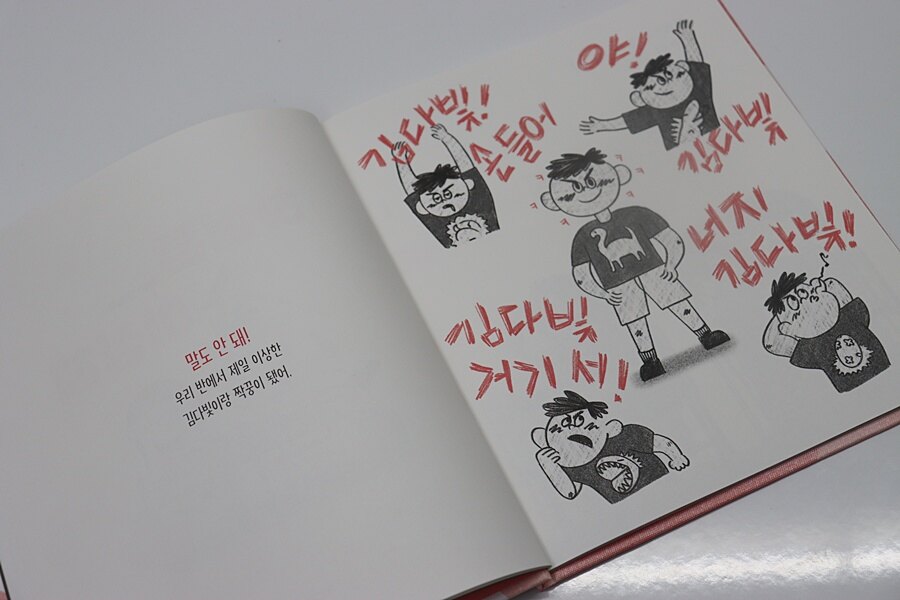 말도 안 돼!
우리 반에서 제일 이상한
김다빛이랑 짝꿍이 됐어.
김다빛!
손들어
야!
김다빛
ㅋ ㅋ
ㅋ ㅋ
ㅋ ㅋ
너지
김다빛!
김다빛
거기 서!